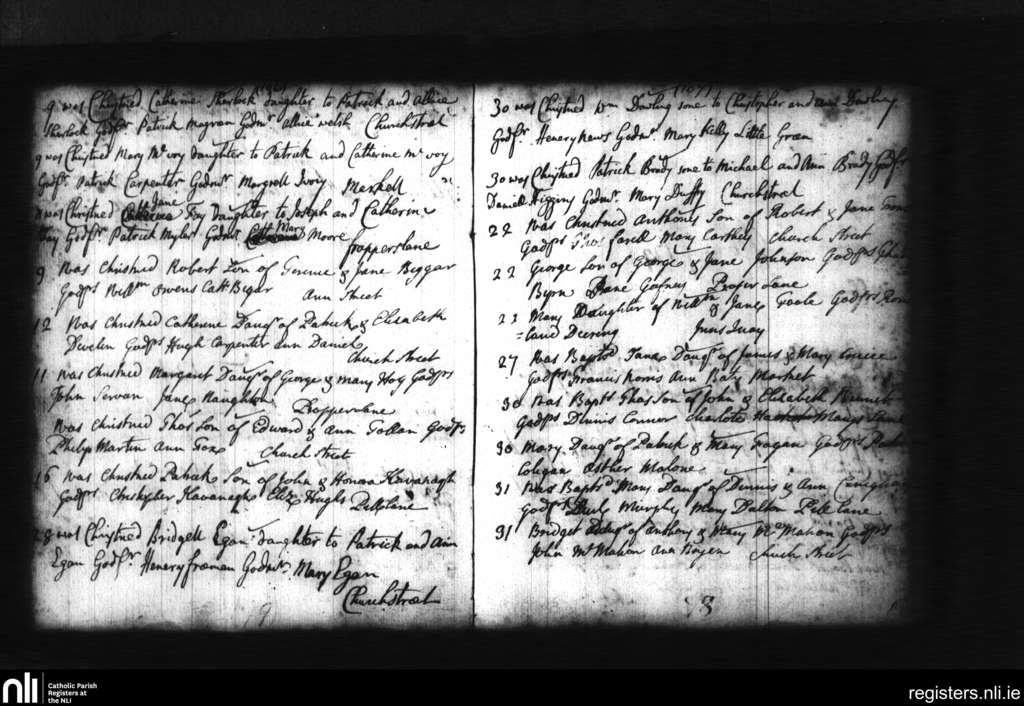 9 was Christned Catherine Sherlock daughter to Patrick and Allice
Sherlock Godfr. Patrick Magvran Godmr. Allice Welsh Churchstreet
9 was Christned Mary Mc voy daughter to Patrick and Catherine Mc voy
Godfr. Patrick Carpenter Godmr. Margrell Ivory
was Christned Jane Foy Daughter to Joseph and Catherine
Foy Godfr. Patrick Myler Godmr. Mary Moore fropperslane
9 Was Christned Robert Son of Terence & Jane Beggar
Godprs Willm Owens Cath Begar Ann Street
12 Was Christned Catherine Daugr. of Patrick & Elizabeth
Develin Godprs Hugh Carpenter Ann Daniel
Church Street
11 was Christned Margaret Daugr. of George & Mary Hoy Godprs
John Servan Jane Naughton
Propperlane
Was Christned Thos Son of Edward & Ann Godprs
Philip Martin Ann Church Street
16 was Christned Patrick Son of John & Honora Kavanagh
Godprs. Christopher Kavanagh Eliz Hughs Pill lane
28 was Christned Bridgett Egan daughter to Patrick and Ann
Egan Godfr. Henery freeman Godmr. Mary Egan
Churchstreet
30 was Christned Wm Dowling sone to Christopher and Dowling
Godfr. Henery Godmr. Mary Kelly Little Green
30 was Christned Patrick Brady sone to Michael and Ann Brady Godfr.
Daniell Higgins Godmr. Mary Duffy Churchstreet
22 Was Christned Anthony Son of Robert & Jane
Godprs Thos farell Mary Carthey Church Street
22 George Son of George & Jane Johnson Godprs
Byrn Jane Gafney Proper Lane
22 Mary Daughter of Willm & Jane Toole Godprs
=land Deering Inns Quay
27 Was Baptd Jane Daugr. of James & Mary
Godprs Francis Norris Ann Market
30 Was Baptd Thos Son of John & Elizabeth
Godprs Dinnis Connor Charlote Mary
30 Mary Daugr. of Patrick & Mary Fagan Godprs
Colligan Esther Malone
31 Was Baptd Mary Daugr. of Dinnis & Ann
Godprs Murphy Mary Dalton Pill Lane
31 Bridget Daugr. of Anthony & Mary Mc Mahon Godprs
John Mc Mahon Ann Church Street
9
3
nli
Catholic Parish
Registers at
the NLI
registers.nli.ie